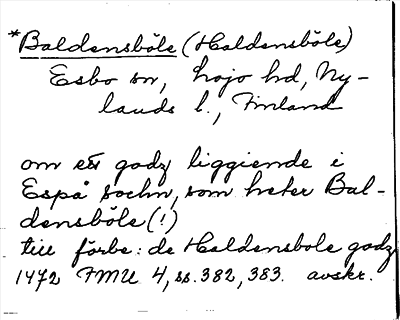 *Baldensböle (Haldensböle)
Esbo sn, Lojo hd, Ny-
lands l., Finland
om ett godz liggiende i
Espå sochn, som heter Bal-
densböle (!)
till förbe: de Haldensbole godz
1472 FMU 4, ss. 382, 383. avskr.